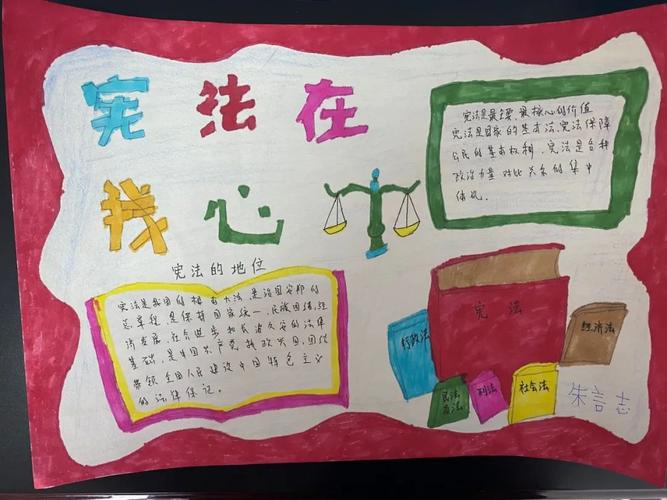 宪法在
我心
宪法是最重、最核心的价值
宪法是国家的基本法,宪法保障
公民的基本权利,宪法是各种
政治力量对比关系的集中
体现。
宪法的地位
宪法是我国的根本大法,是治国安邦的
总章程,是保持国家统一、民族团结,经
济发展,社会进步和长治久安的法律
基础,是中国共产党执政兴国,团结
带领全国人民建设中国特色主义
的法律保证。
宪法
行政法
经济法
民法
商法
刑法
社会法
朱言志